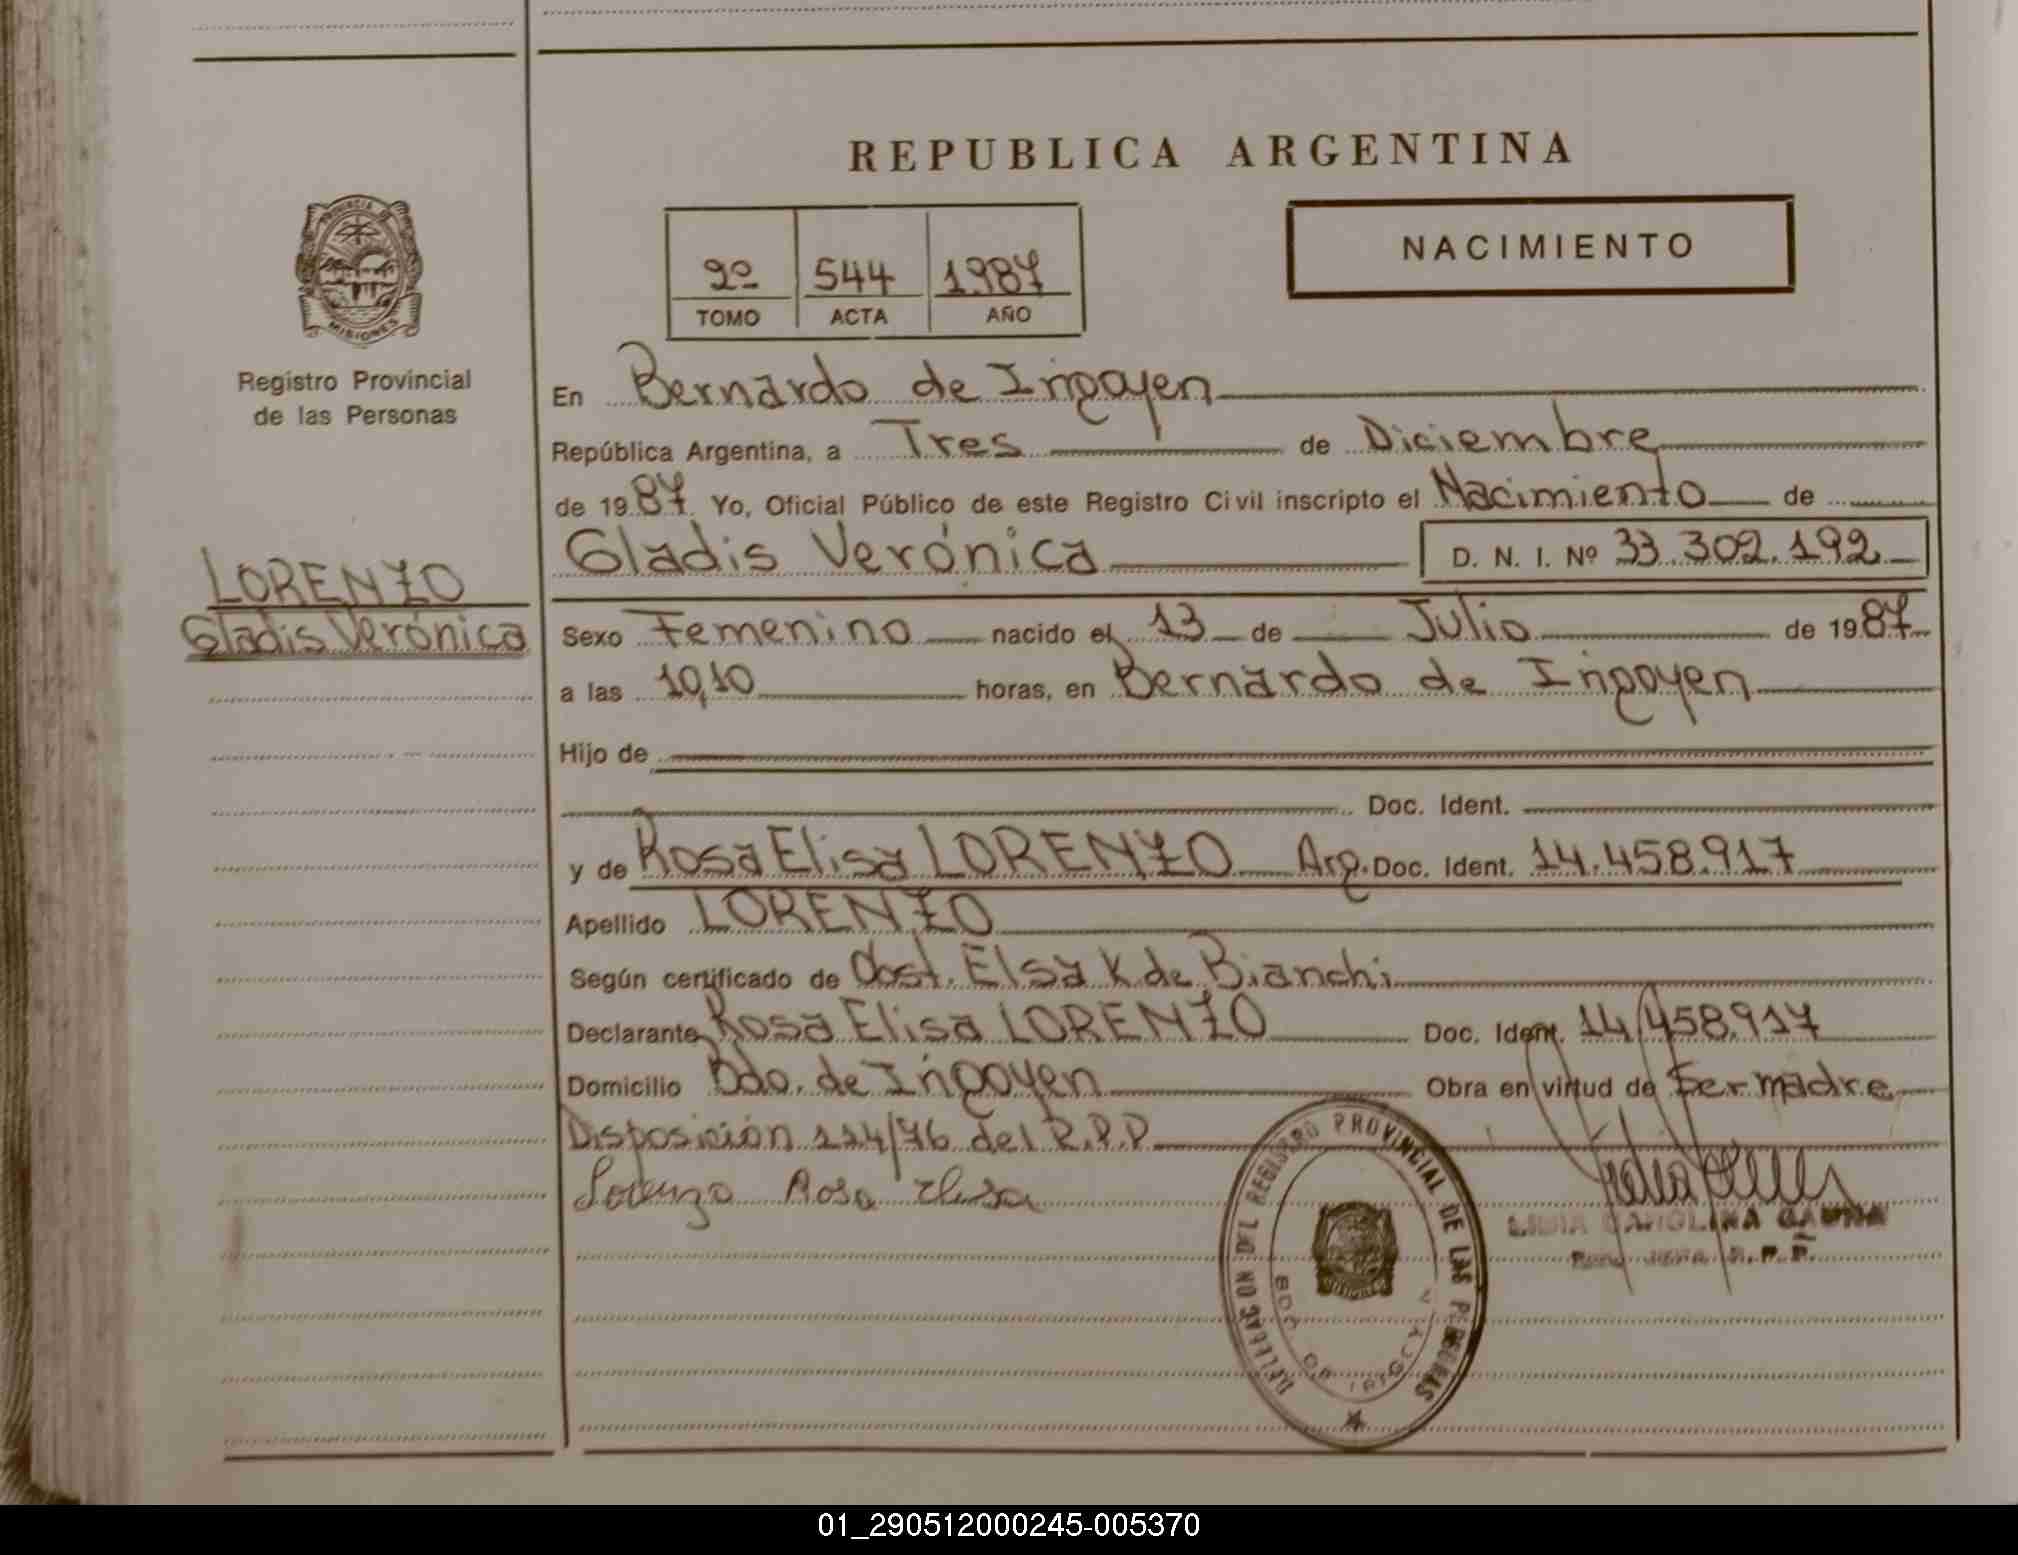 REPUBLICA ARGENTINA
NACIMIENTO
2º 544 1987
TOMO ACTA AÑO
PROVINCIA DE
MISIONES
Registro Provincial
de las Personas
LORENZO
Gladis Verónica
En Bernardo de Irigoyen
República Argentina, a Tres de Diciembre
de 1987 Yo, Oficial Público de este Registro Civil inscripto el Nacimiento de
Gladis Verónica D. N. I. Nº 33.302.192
Sexo Femenino nacido el 13 de Julio de 1987
a las 10,10 horas, en Bernardo de Irigoyen
Hijo de
Doc. Ident.
y de Rosa Elisa LORENZO Arg. Doc. Ident. 14.458.917
Apellido LORENZO
Según certificado de Obst. Elsa K de Bianchi
Declarante Rosa Elisa LORENZO Doc. Ident. 14.458.917
Domicilio Bdo. de Irigoyen Obra en virtud de Ser madre
Disposición 114/76 del R.P.P.
Lorenzo Rosa Elisa
DELEGACION DEL REGISTRO PROVINCIAL DE LAS PERSONAS
BDO. DE IRIGOYEN
CAROLINA GAUNA
R.P.P.
01_290512000245-005370